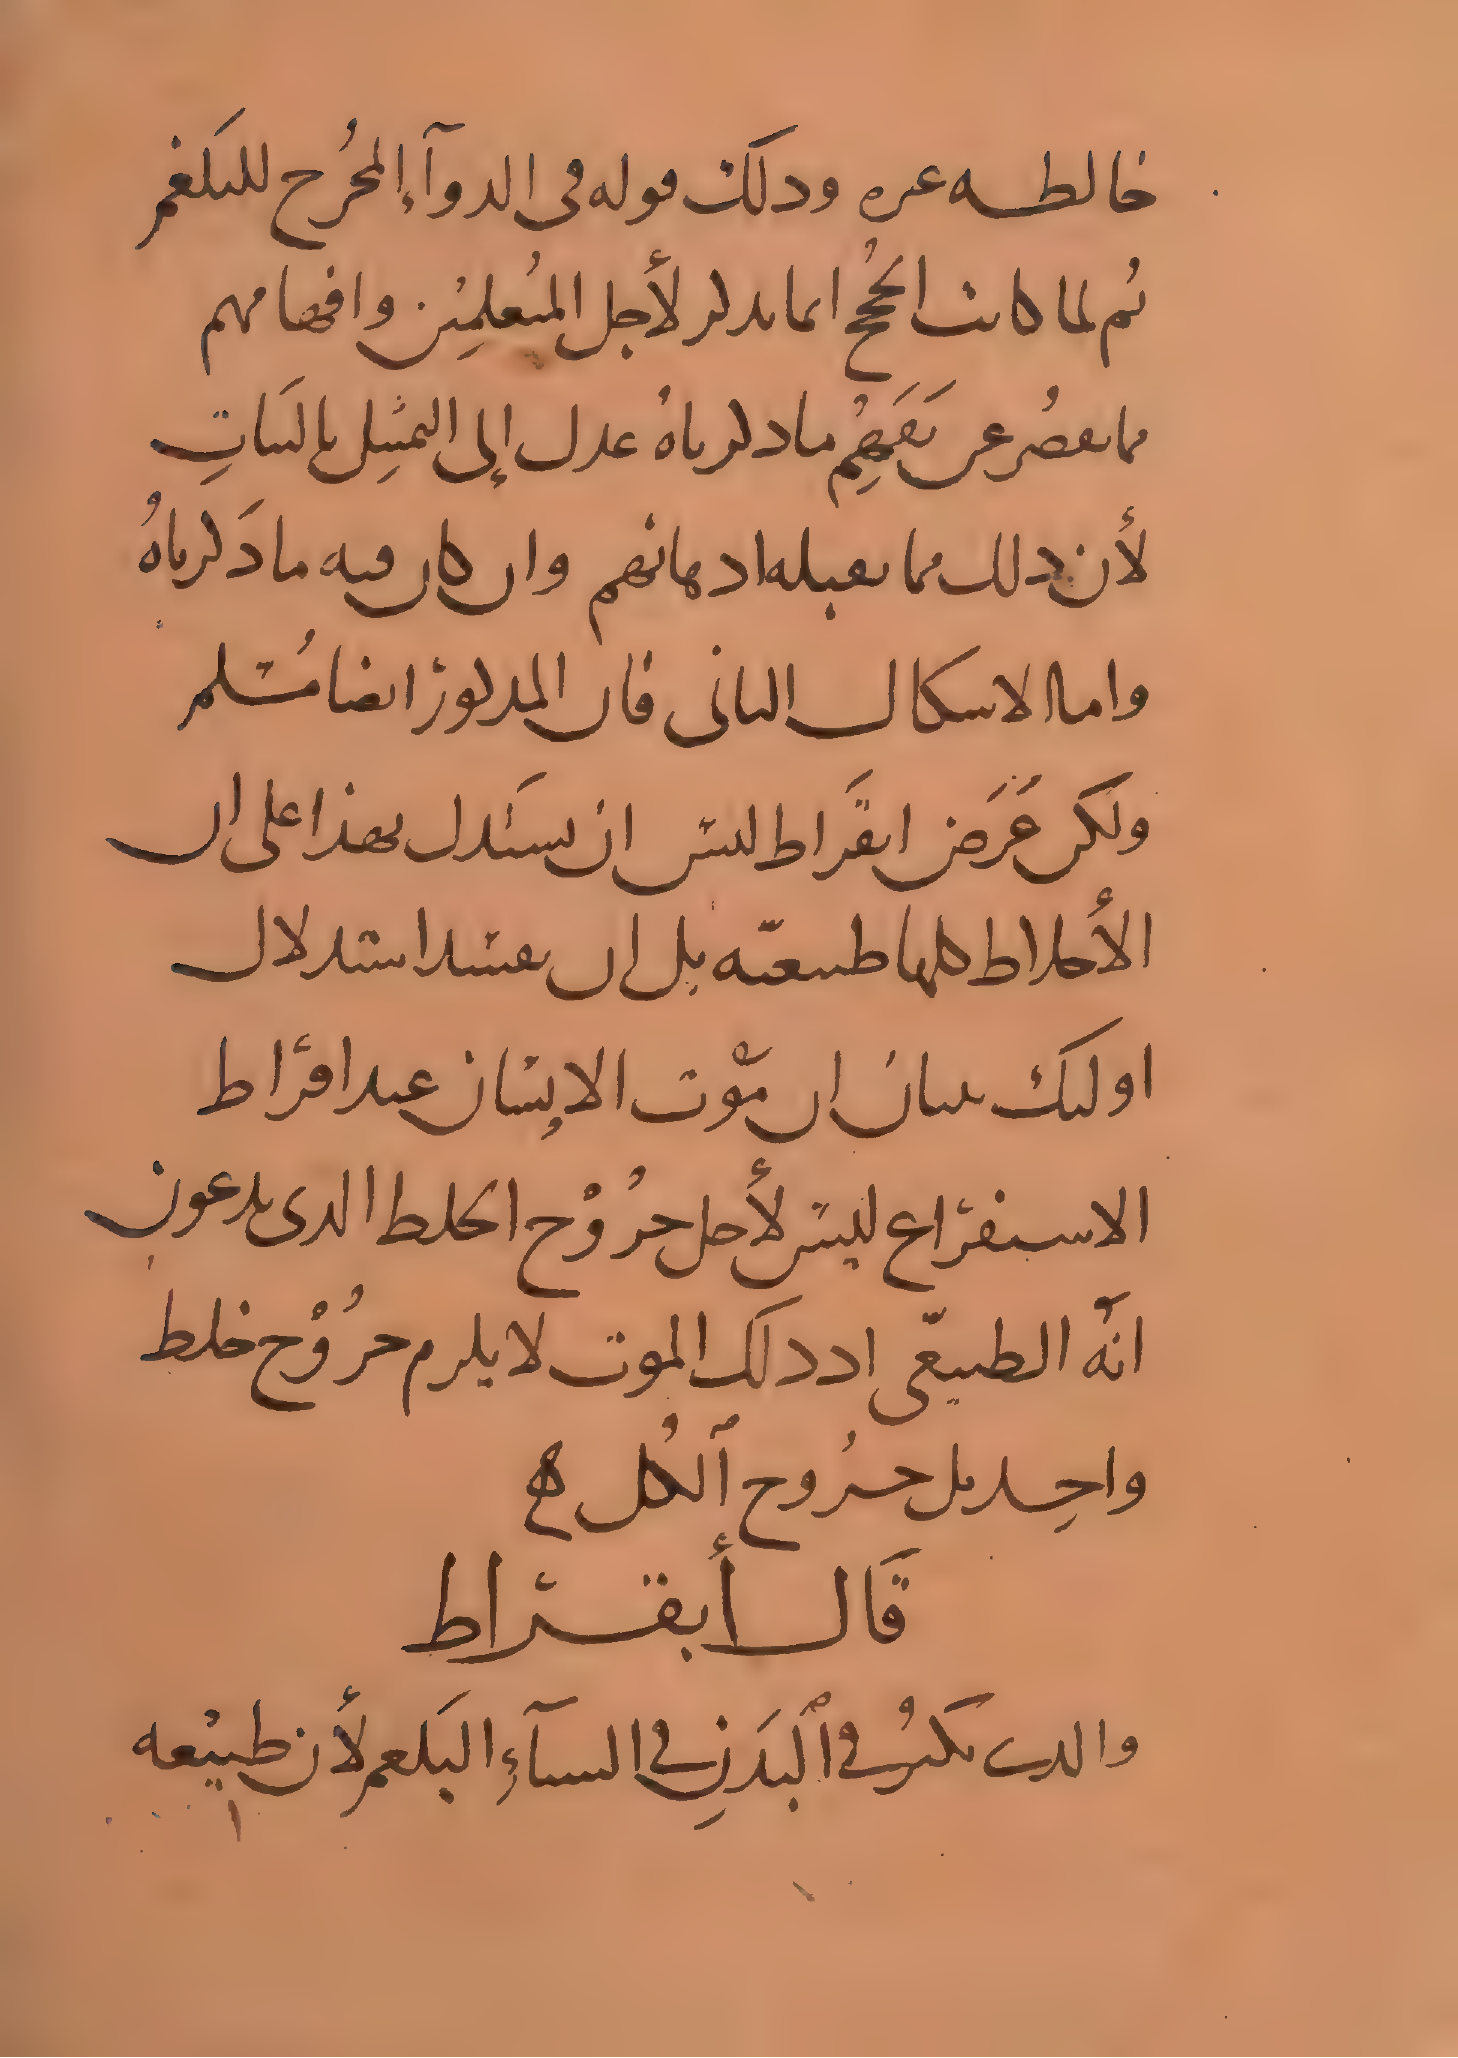 خالطه غيره وذلك قوله في الدوآء المخُرج للبَلغم
ثم لما كانت الحُجج انما تذكر لأجل المُتعلمِين وافهامهم
مما يقصُر عن تفَهُّم ما ذكرناهُ عدل إلى التمثيل بالنبَاتِ
لأن ذلك مما يقبله اذهانهم وان كان فيه ما ذَكرناهُ
واما الاشكال الثانى فان المذكور ايضا مُسَلم
ولَكن غَرَض ابقَراط ليس ان يستدل بهذا على ان
الأخلاط كلها طبيعيّه بل ان يفسد استدلال
اولَئك ببيان ان مَوْت الاِنسان عند افراط
الاستفراغ ليس لأجل خرُوْج الخلط الذى يدعون
انّه الطبيعّى اذ ذلَك الموت لا يلزم خرُوْج خلط
واحِد بل خرُوج ٱلكُل ھ
قَال أبقراط
والذى يَكثُر في ٱلبَدَنِ في الشتآءِ البَلغم لأن طبيْعه